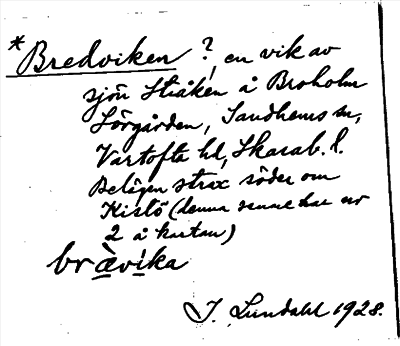 * Bredviken ?, en vik av
sjön Stråken å Broholm
Sörgården, Sandhems sn,
Vartofta hd, Skarab. l.
Belägen strax söder om
Kistö (denna senare har nr
2 å kartan)
brävika
J. Lundahl 1928.